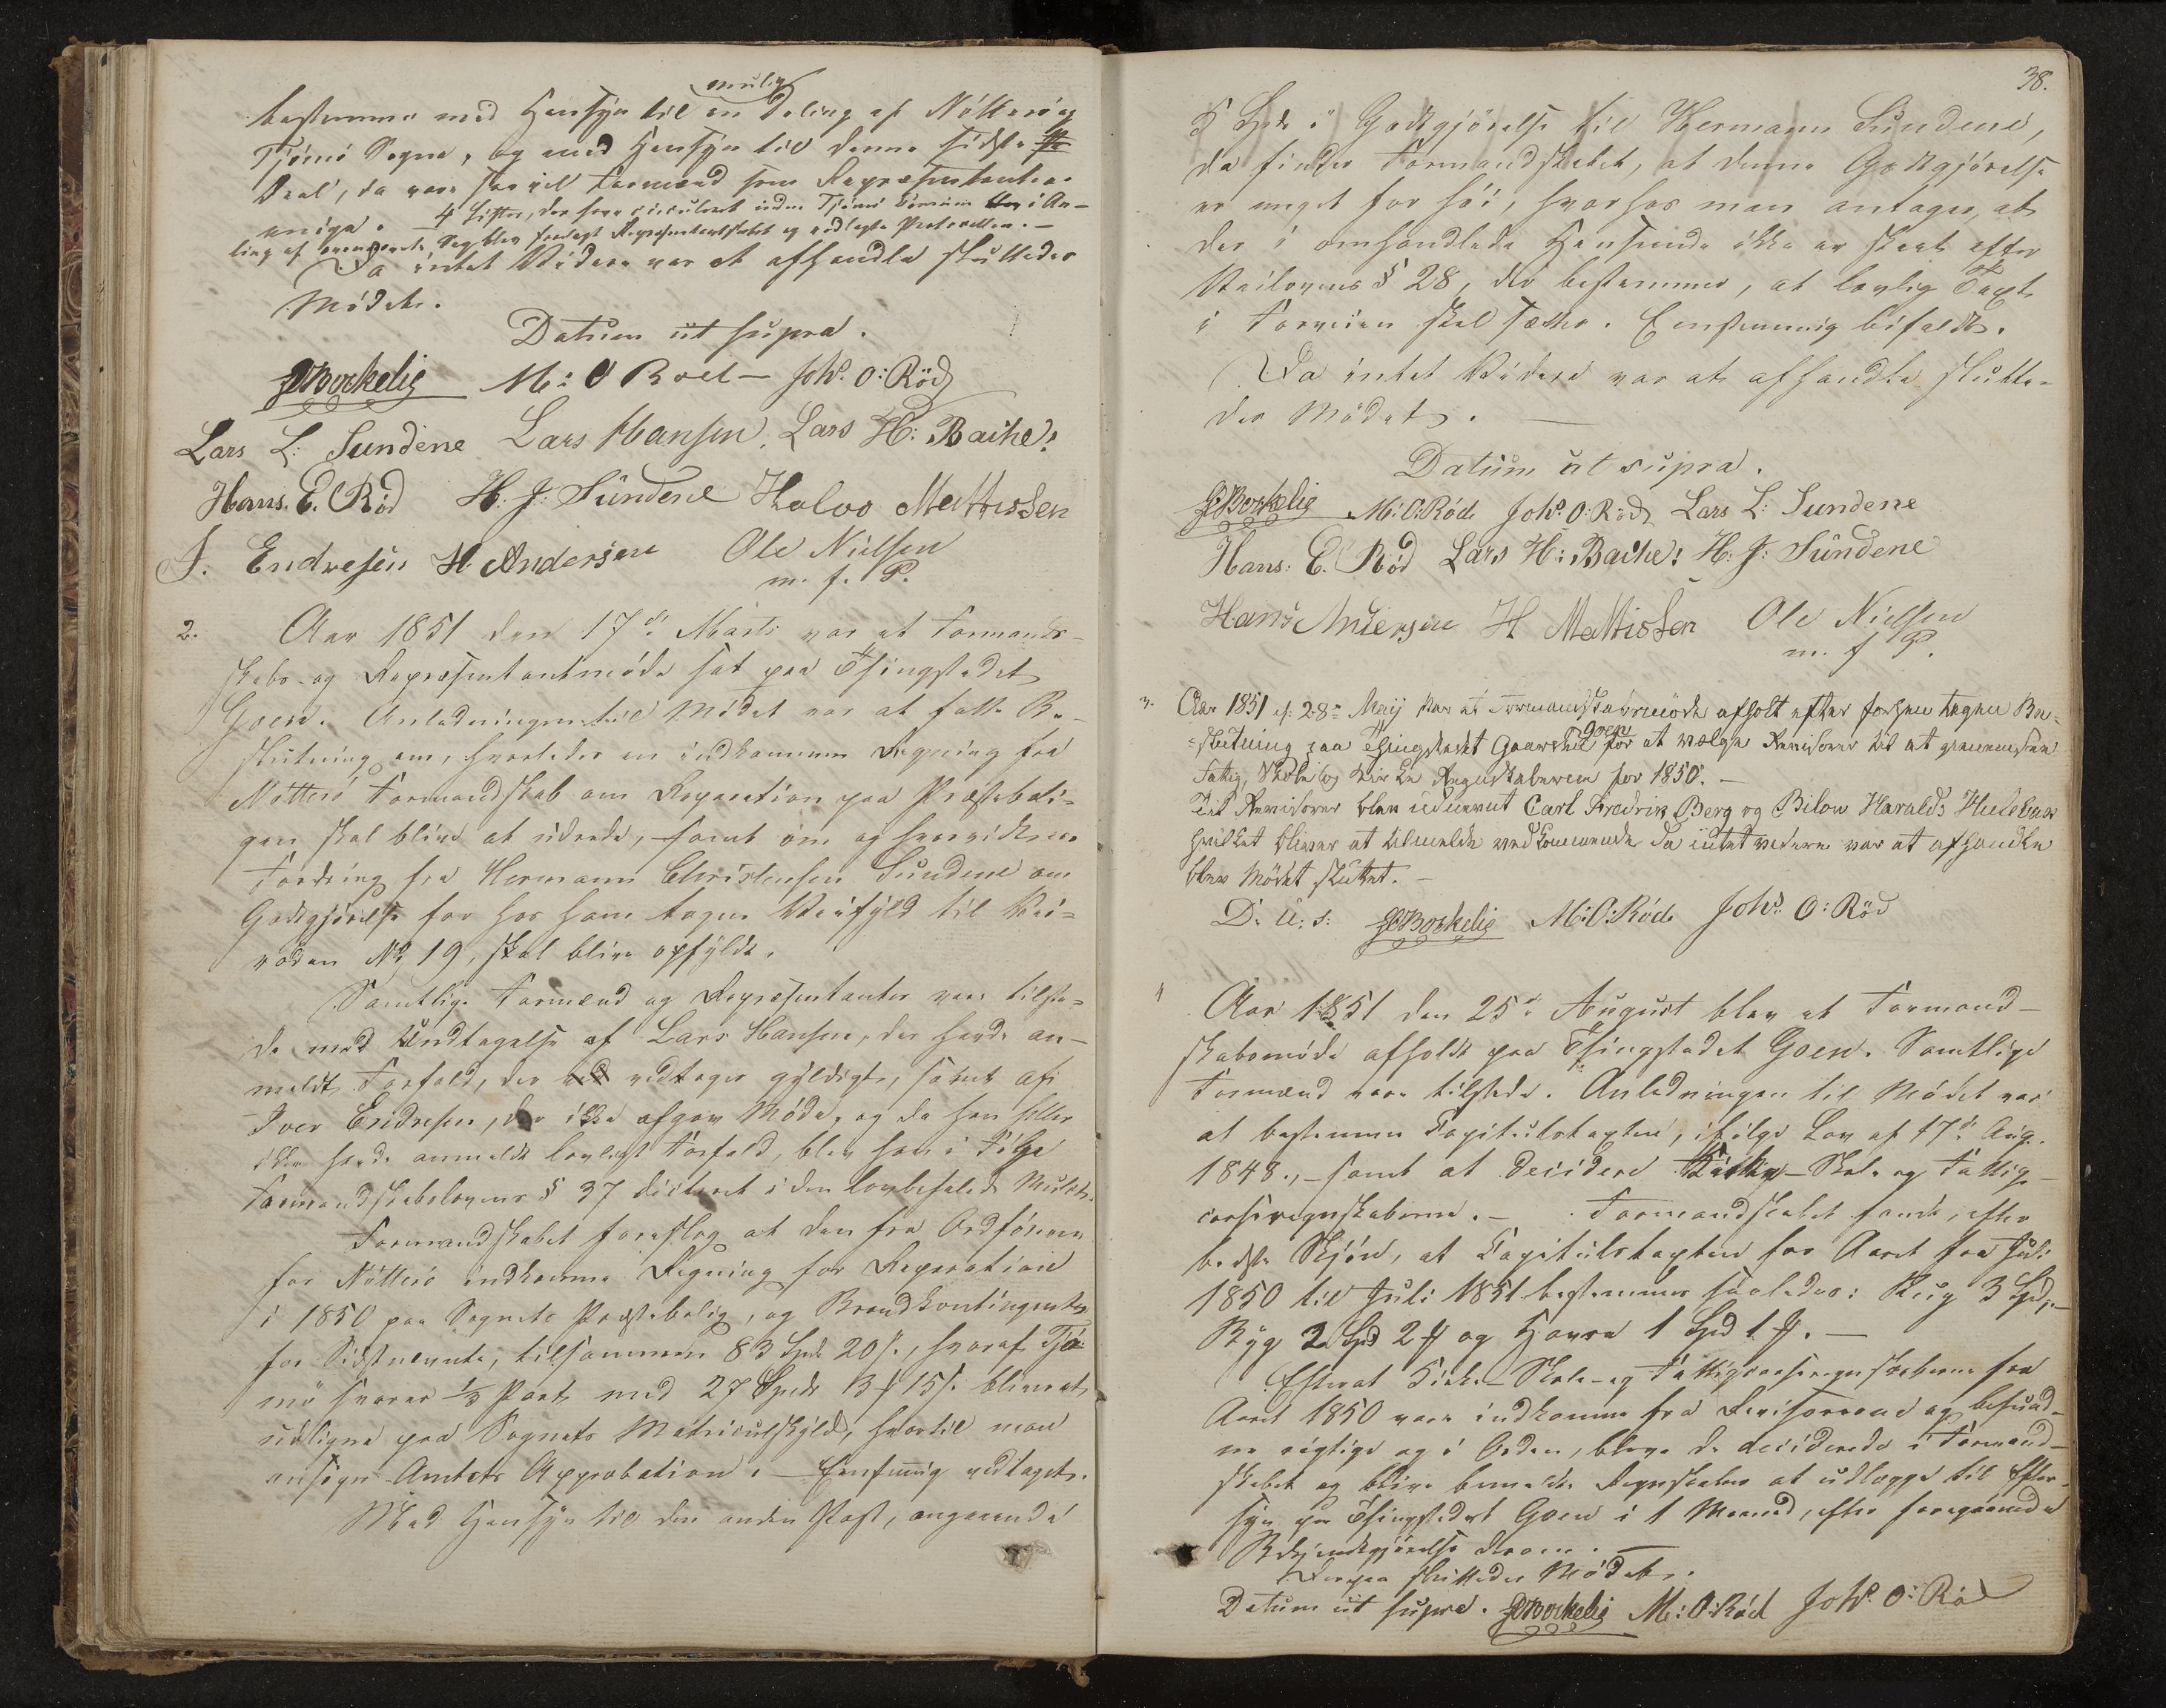 mulig
bestemme med Hensyn til en Deling af Nötterö og
Tjömö Sogne, og med Hensyn til denne sidste
Deel, da vare saavel Formænd som Repræsentanter
enige. — 4 Lister, der have circuleret inden Tjömö i An-
ling af Sag blev forelagt Repræsentantskabet og vedlagte Protocollen. —
Da intet Videre var at afhandle sluttedes
Mödet.
Datum ut supra.
Borkelig M: O Roed — Joh[s]. O: Röd
Lars L: Sundene Lars Hansen. Lars H: Backe!
Hans. E. Röd H. J: Sundene Holvo Mattissen
I. Endresen H Andersen Ole Nielsen
m. f. P.
2. Aar 1851 den 17de Marts var et Formands-
skabs- og Repræsentantmöde sat paa Thingstedet
Goen. Anledningen til Mödet var at fatte Be-
slutning om, hvorledes en indkommen Regning fra
Nötterö Formandskab om Reparation paa Præsteboli-
gen skal blive at udrede, samt om og hvorvidt en
Fordring fra Hermann Christensen Sundene om
Godtgjörelse for hos ham tagen Veifyld til Vei-
roden No 19, skal blive opfyldt.
Samtlige Formænd og Repræsentanter vare tilste-
de med Undtagelse af Lars Hansen, der havde an-
meldt Forfald, der ved vedtoges gyldigt, samt af
Iver Endresen, der ikke afgav Möde, og da han heller
ikke havde anmeldt lovligt Forfald, blev han i Fölge
Formandskabslovens § 37 dicteret i den lovbefalede Mulct.
Formandskabet foreslog at den fra Ordföreren
for Nötterö indkomne Regning for Reparation
i 1850 paa Sognets Præstebolig, og Brandkontingent
for Sidstnævnte, tilsammen 83 Spd. 20 s., hvoraf Tjö-
mö svarer 1/3 Part med 27 Spd. 3 15 s. bliver at
udligne paa Sognets Matriculskyld, hvortil man
ansöger Amtets Approbation. — Eenstemmig vedtaget.
Med Hensyn til den anden Post, angaaende
38.
5 Spd. i Godtgjörelse til Hermann Sundene,
da finder Formandskabet, at denne Godtgjörelse
er meget for höi, hvorhos man antager, at
der i omhandlede Henseende ikke er skeet efter
Veilovens § 28, der bestemmer, at lovlig Taxt
i Forveien skal sættes. Eenstemmig bifaldt.
Da intet Videre var at afhandle slutte-
des Mödet. —
Datum ut supra.
Borkelig M: O: Röd. Joh[s]. O: Röd Lars L: Sundene
Hans: E. Röd Lars H: Backe! H: J: Sundene
Hans Andersen H Mattissen Ole Nielsen
m. f P.
3. Aar 1851 d: 28de Maij var et Formandskabsmöde afholt efter forhen tagen Be-
Goen
slutning paa Thingstedet for at vælge Revisorer til at gjennemsee
Fattig, Skole og Kirke Regnskaberne for 1850. —
Til Revisorer blev udnævnt Carl Fredrik Berg og Bilow Haralds
hvilket bliver at tilmelde vedkommende da intet videre var at afhandle
blev Mödet sluttet. —
D: U: s: Borkelig M: O: Röd. Joh[s]. O: Röd
4 Aar 1851 den 25de August blev et Formand-
skabsmöde afholdt paa Thingstedet Goen. Samtlige
Formænd vare tilstede. Anledningen til Mödet var
at bestemme Capitulstaxten, ifölge Lov af 17de Aug.
1848., — samt at decidere Kirke- Skole og Fattig-
cassregnskaberne. — Formandskabet fandt, efter
bedste Skjön, at Capitulstaxten for Aaret fra Juli
1850 til Juli 1851 bestemmes saaledes: Rug 3 Spd, —
Byg 2 Spd 2 og Havre 1 Spd 1 . —
Efterat Kirke- Skole- og Fattigcasseregnskaberne for
Aaret 1850 vare indkomne fra Revisorerne og befund-
ne rigtige og i Orden, bleve de deciderede i Formand-
skabet og blive bemeldte Regnskaber at udlægge til Efter-
syn paa Thingstedet Goen i 1 Maaned, efter foregaaende
Bekjendtgjörelse derom. —
Derpaa sluttedes Mödet.
Datum ut supra. Borkelig M: O: Röd Joh[s]. O: Röd